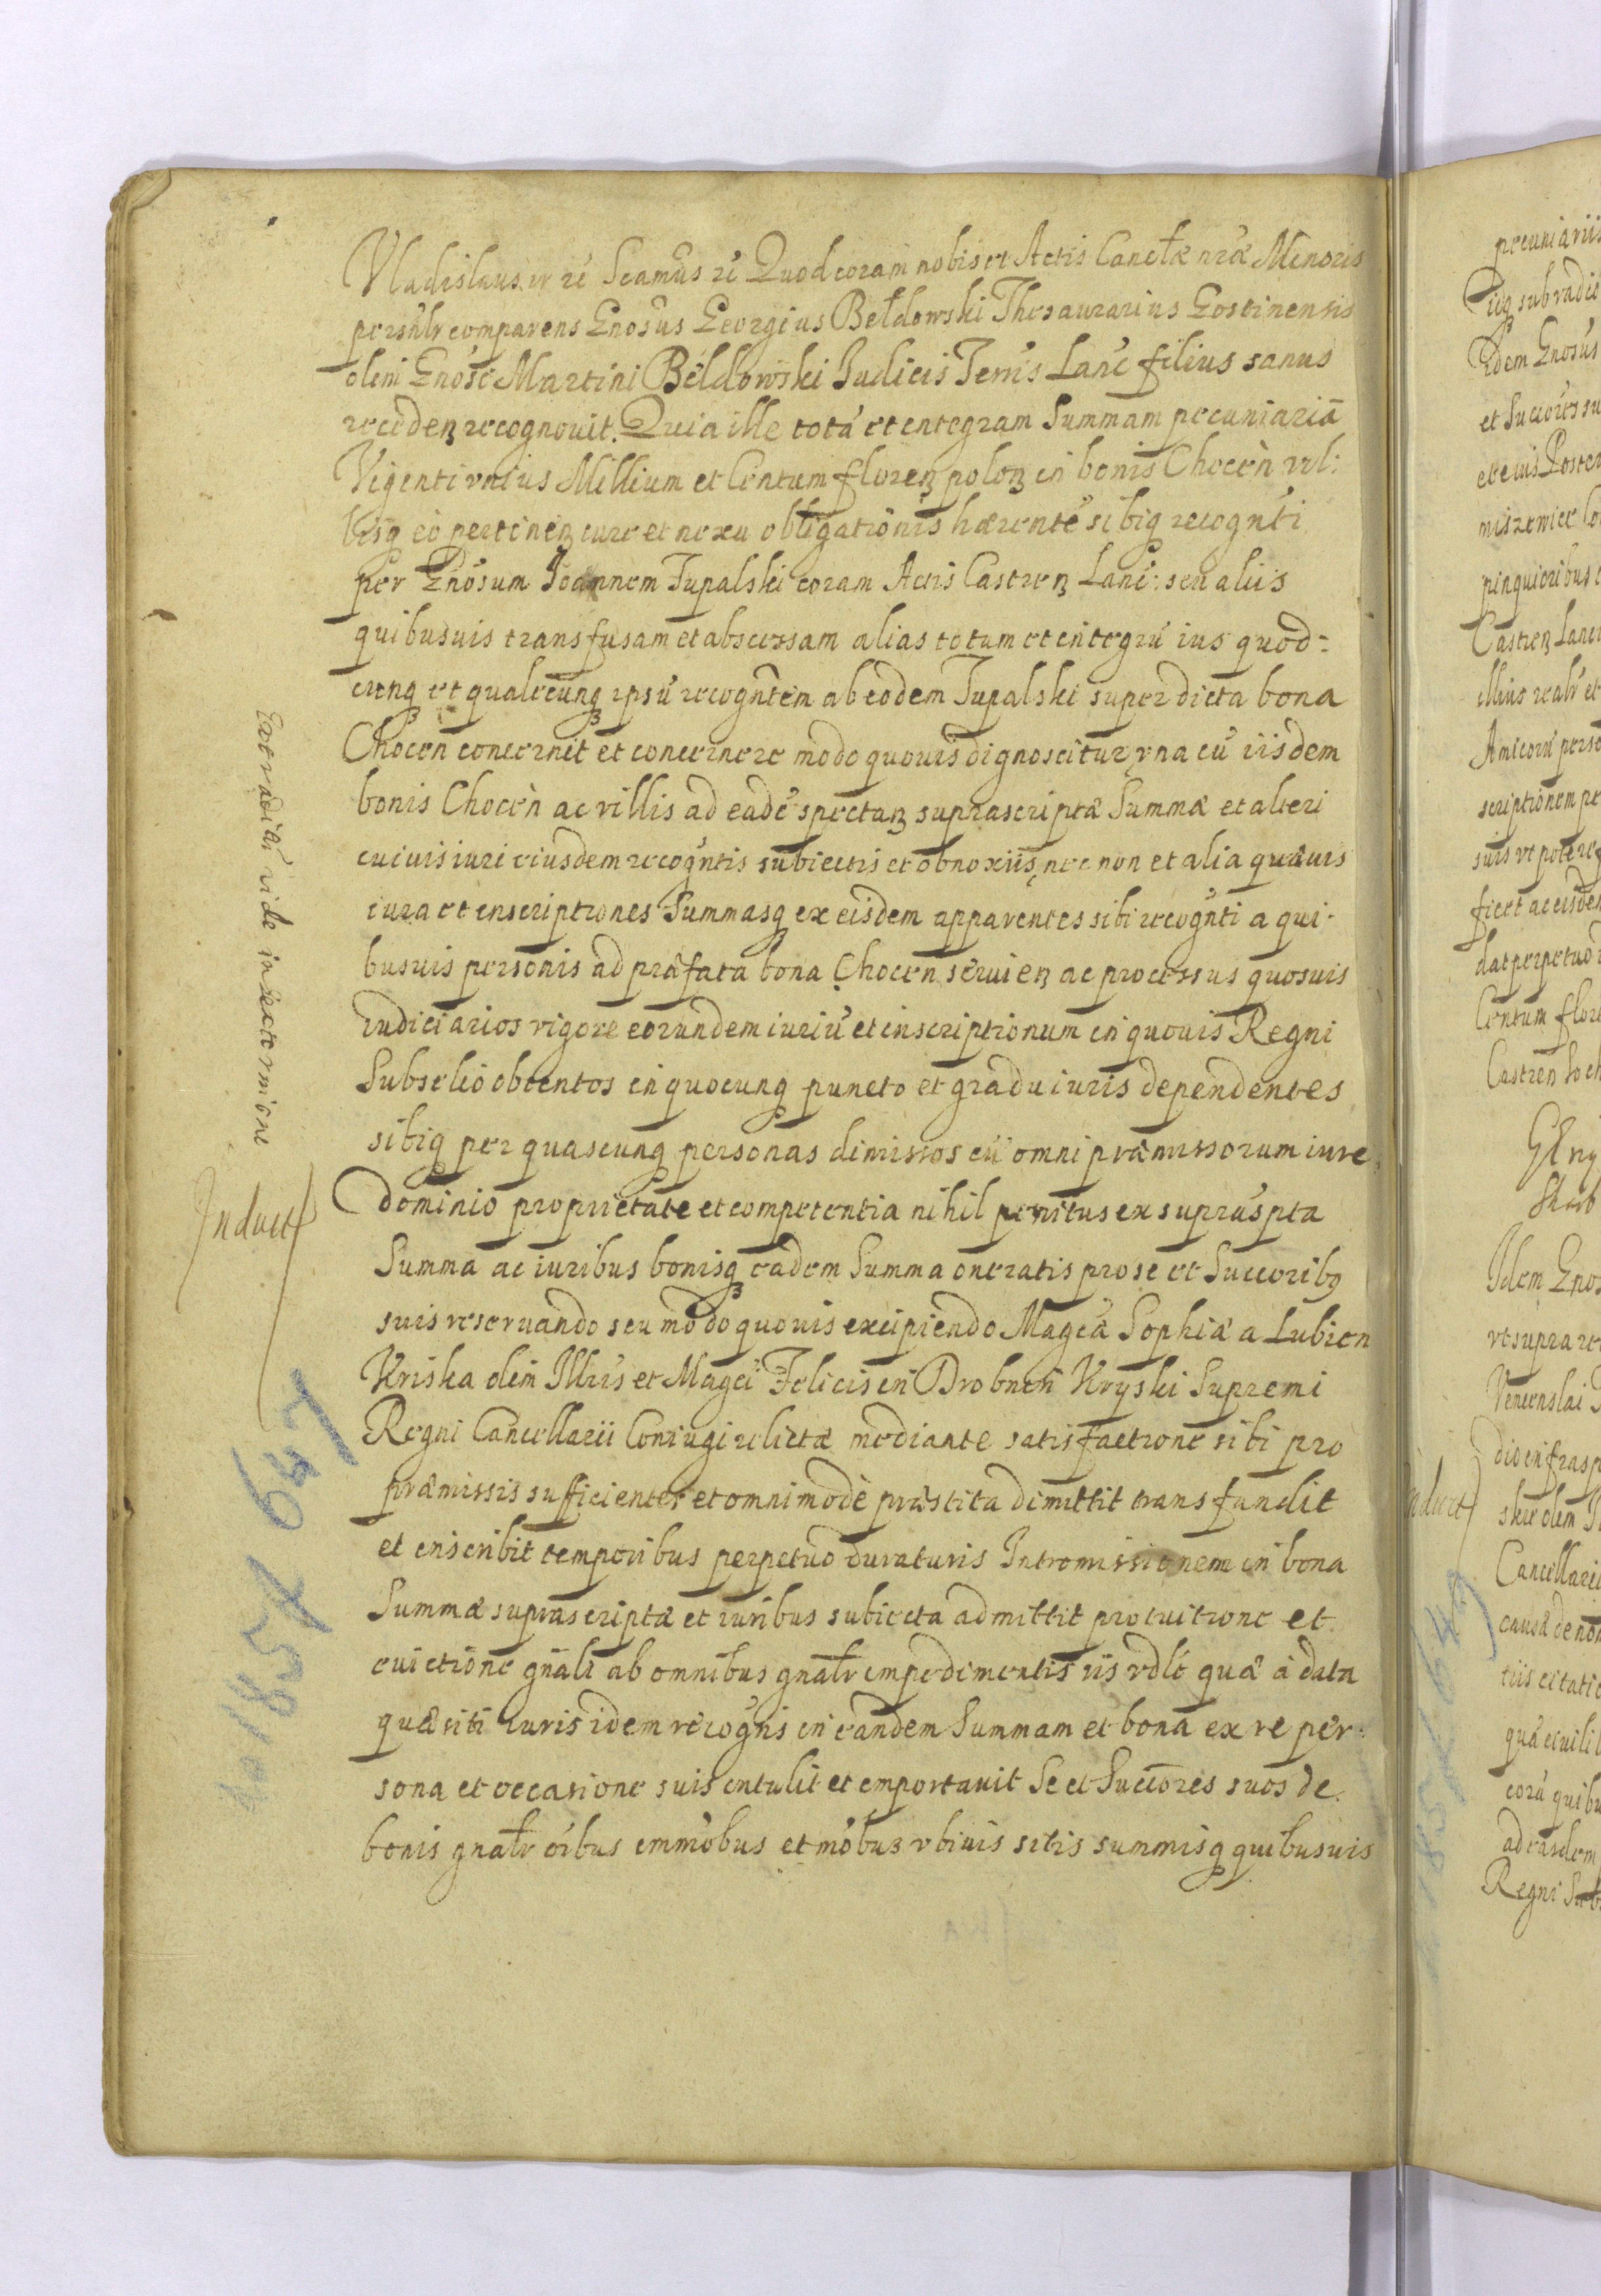 Vladislaus IV rc Scamus rc Quod coram nobis et Actis Cancłæ nræ Minoris
persnlr comparens Gnosus Georgius Bełdowski Thesaurarius Gostinensis
olim Gnosi Martini Bełdowski Iudicis Terris Lanc filius sanus
recedenꝫ recognouit. Quia ille totā et integram Summam pecuniariā
Viginti vnius Millium et Centum florenꝫ polonꝫ in bonis Chocen vil:
lisq eo pertinenꝫ iure et nexu obligationis hærentē sibiq recognti
per Gnosum Ioannem Tupalski coram Actis Castrenꝫ Lanc: seu aliis
quibusuis transfusam et abscessam alias totum et integrū ius quod:
cunq et qualecunq ipsū recogntem ab eodem Tupalski super dicta bona
Chocen concernit et concernere modo quouis dignoscitur, vna cū iisdem
bonis Chocen ac villis ad eadē spectanꝫ suprascriptæ Summæ et alteri
cuiuis iuri eiusdem recogntis subiectis et obnoxiis, nec non et alia quæuis
iura et inscriptiones Summasq ex eisdem apparentes sibi recognti a qui-
busuis personis ad præfata bona Chocen seruienꝫ ac processus quosuis
iudiciarios vigore eorundem iuriū et inscriptionum in quouis Regni
Subselio obtentos in quocunq puncto et gradu iuris dependentes
sibiq per quascunq personas dimissos cū omni præmissorum iure
dominio proprietate et competentia nihil penitus ex supraspta
Summa ac iuribus bonisq eadem Summa oneratis pro se et Succoribꝯ
suis reseruando seu modo quouis excipiendo Magcæ Sophiæ a Lubien
Kriska olim Illris et Magci Felicis in Drobnin Kryski Supremi
Regni Cancellarii Coniugi relictæ mediante satisfactione sibi pro
præmissis sufficienter et omnimodè præstita dimittit transfundit
et inscribit temporibus perpetuo duraturis Intromissionem in bona
Summæ suprascriptæ et iuribus subiecta admittit pro euictione et
euictione gnali ab omnibus gnalr impedimentis iis vdlt quæ à data
quæsiti iuris idem recogns in eandem Summam et bona ex re per:
sona et occasione suis intulit et importauit Se et Succores suos de
bonis gnalr oibus immobus et mobuꝫ vbiuis sitis summisq quibusuis
vide in sextermione
Induct
647
185
pecuniariis
Idem Gnosus
Castrenꝫ Lanc
scriptionem pe
dat perpetuo
Centum flor
Idem Gnos
vt supra re
Cancellarii
Regni Sub